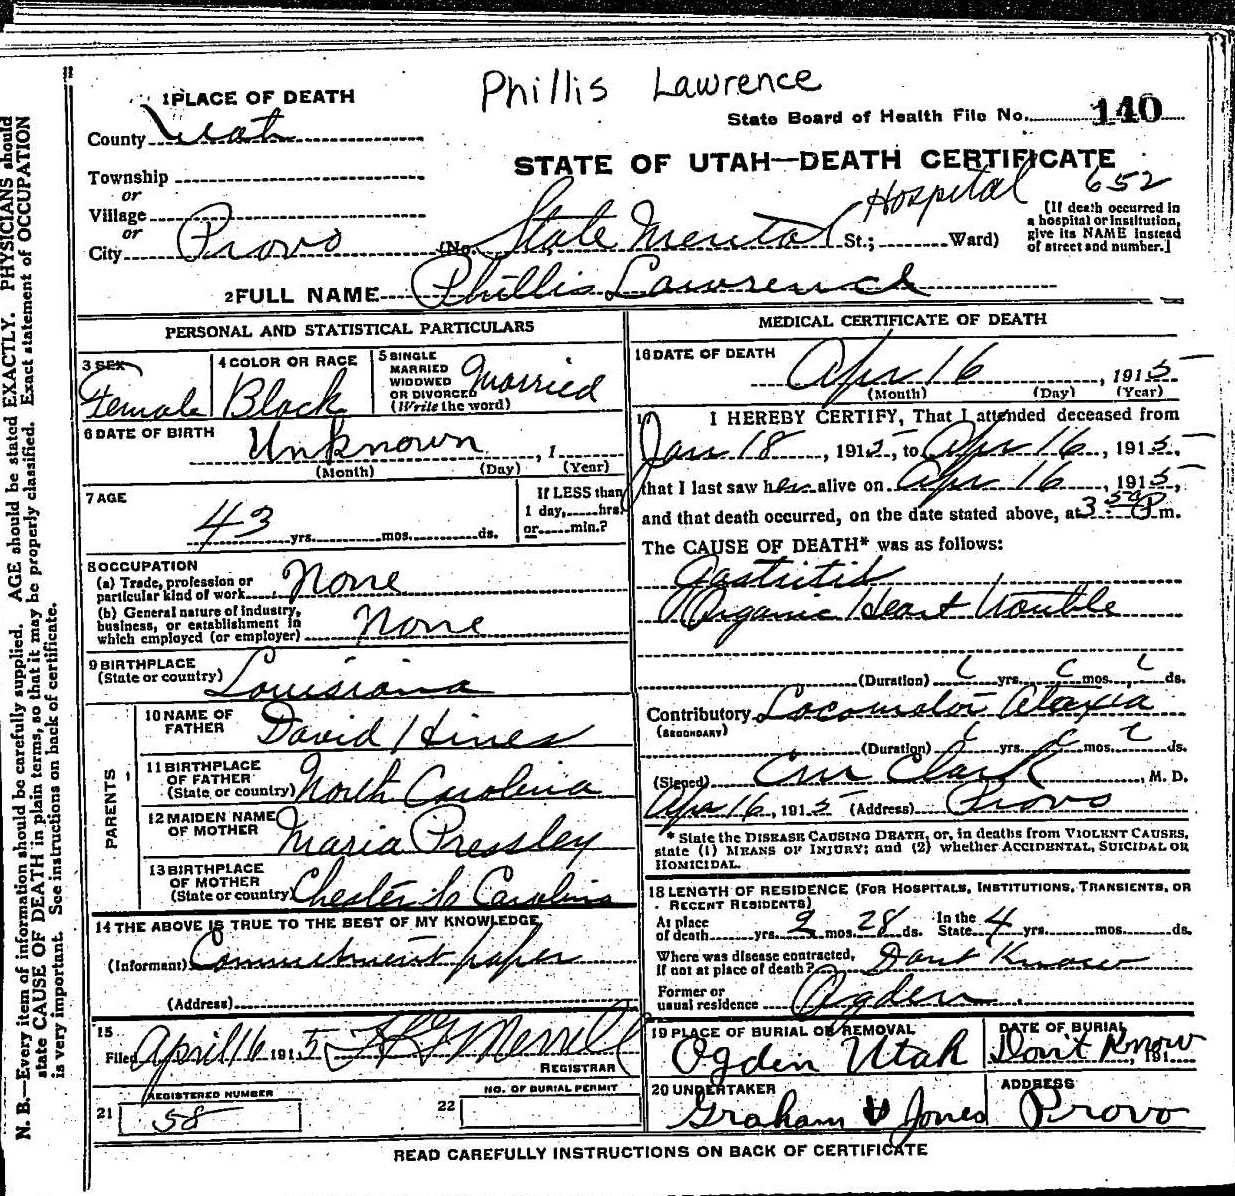 Phillis Lawrence
1 PLACE OF DEATH
County Utah
State Board of Health File No. 140
STATE OF UTAH—DEATH CERTIFICATE
Township
or
Village
or
City Provo (No. State Mental Hospital St.; Ward)
652
[If death occurred in
a hospital or institution,
give its NAME instead
of street and number.]
2 FULL NAME Phillis Lawrence
PERSONAL AND STATISTICAL PARTICULARS
3 SEX Female
4 COLOR OR RACE Black
5 SINGLE
MARRIED
WIDOWED
OR DIVORCED
(Write the word) Married
6 DATE OF BIRTH Unknown, 1
(Month) (Day) (Year)
7 AGE
43 yrs. mos. ds.
If LESS than
1 day, hrs.
or min.?
8 OCCUPATION
(a) Trade, profession or
particular kind of work None
(b) General nature of industry,
business, or establishment in
which employed (or employer) None
9 BIRTHPLACE
(State or country) Louisiana
PARENTS
10 NAME OF
FATHER David Hines
11 BIRTHPLACE
OF FATHER
(State or country) North Carolina
12 MAIDEN NAME
OF MOTHER Maria Pressley
13 BIRTHPLACE
OF MOTHER
(State or country) Chester Carolina
14 THE ABOVE IS TRUE TO THE BEST OF MY KNOWLEDGE
(Informant) Commitment paper
(Address)
15
Filed April 16 1915 Merrell
REGISTRAR
REGISTERED NUMBER
21 58
NO. OF BURIAL PERMIT
22
MEDICAL CERTIFICATE OF DEATH
16 DATE OF DEATH
Apr 16, 1915
(Month) (Day) (Year)
17 I HEREBY CERTIFY, That I attended deceased from
Jan 18, 1915, to Apr 16, 1915,
that I last saw her alive on Apr 16, 1915,
and that death occurred, on the date stated above, at 3:50 P m.
The CAUSE OF DEATH* was as follows:
Gastritis
Organic Heart trouble
(Duration) yrs. mos. ds.
Contributory Locomotor Ataxia
(SECONDARY)
(Duration) yrs. mos. ds.
(Signed) Clark, M. D.
Apr 16, 1915 (Address) Provo
* State the DISEASE CAUSING DEATH, or, in deaths from VIOLENT CAUSES,
state (1) MEANS OF INJURY; and (2) whether ACCIDENTAL, SUICIDAL OR
HOMICIDAL.
18 LENGTH OF RESIDENCE (FOR HOSPITALS, INSTITUTIONS, TRANSIENTS, OR
RECENT RESIDENTS)
At place
of death yrs. 2 mos. 28 ds. In the
State 4 yrs. mos. ds.
Where was disease contracted,
if not at place of death? Dont Know
Former or
usual residence Ogden
19 PLACE OF BURIAL OR REMOVAL
Ogden Utah
DATE OF BURIAL
Don't Know, 191
20 UNDERTAKER
Graham & Jones
ADDRESS
Provo
READ CAREFULLY INSTRUCTIONS ON BACK OF CERTIFICATE
N. B.—Every item of information should be carefully supplied. AGE should be stated EXACTLY. PHYSICIANS should
state CAUSE OF DEATH in plain terms, so that it may be properly classified. Exact statement of OCCUPATION
is very important. See instructions on back of certificate.